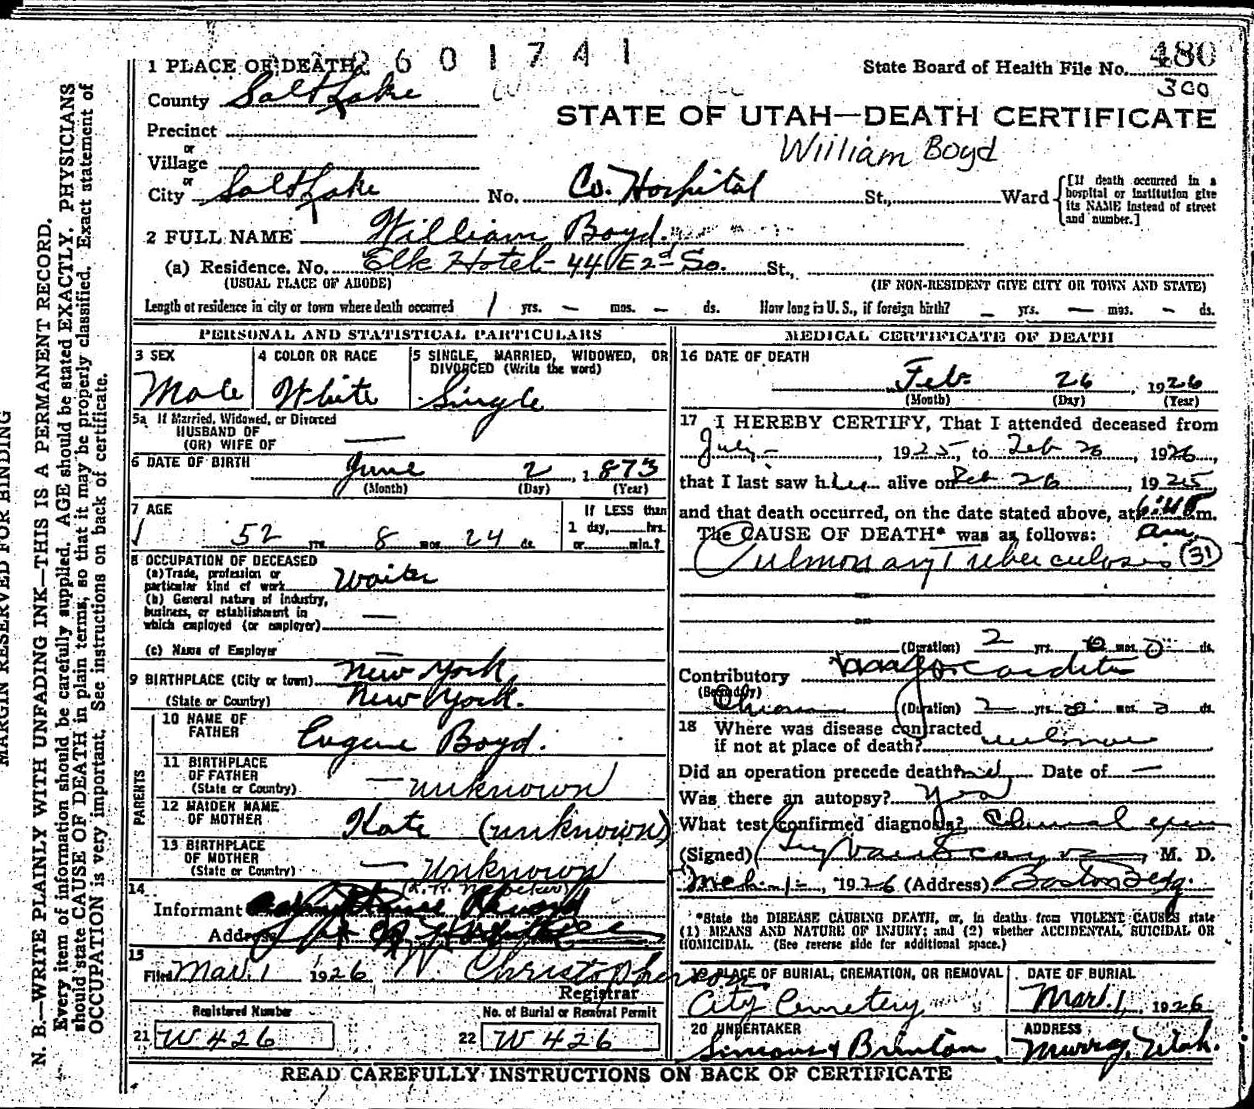 2601741
480
State Board of Health File No.
300
1 PLACE OF DEATH
County Salt Lake
STATE OF UTAH—DEATH CERTIFICATE
William Boyd
Precinct
or
Village
or
City Salt Lake No. Co. Hospital St., Ward
[If death occurred in a hospital or institution give its NAME instead of street and number.]
2 FULL NAME William Boyd.
(a) Residence. No. Elk Hotel - 44 E 2nd So. St.,
(USUAL PLACE OF ABODE) (IF NON-RESIDENT GIVE CITY OR TOWN AND STATE)
Length of residence in city or town where death occurred 1 yrs. — mos. — ds. How long in U. S., if foreign birth? — yrs. — mos. — ds.
PERSONAL AND STATISTICAL PARTICULARS
3 SEX
Male
4 COLOR OR RACE
White
5 SINGLE, MARRIED, WIDOWED, OR DIVORCED (Write the word)
Single
5a If Married, Widowed, or Divorced
HUSBAND OF
(OR) WIFE OF —
6 DATE OF BIRTH June 2, 1873
(Month) (Day) (Year)
7 AGE
52 yrs. 8 mos. 24 ds.
If LESS than
1 day, hrs.
or min.?
8 OCCUPATION OF DECEASED
(a) Trade, profession or
particular kind of work Waiter
(b) General nature of industry,
business, or establishment in
which employed (or employer) —
(c) Name of Employer
9 BIRTHPLACE (City or town) New York
(State or Country) New York.
PARENTS
10 NAME OF
FATHER Eugene Boyd.
11 BIRTHPLACE
OF FATHER
(State or Country) — unknown
12 MAIDEN NAME
OF MOTHER Kate (unknown)
13 BIRTHPLACE
OF MOTHER
(State or Country) — Unknown
14
Informant
Address
15
Filed Mar. 1 1926 W Christopherson
Registrar
Registered Number
21 W 426
No. of Burial or Removal Permit
22 W 426
MEDICAL CERTIFICATE OF DEATH
16 DATE OF DEATH
Feb. 26, 1926
(Month) (Day) (Year)
17 I HEREBY CERTIFY, That I attended deceased from
July -, 1925, to Feb 26, 1926,
that I last saw him alive on Feb 26, 1925
and that death occurred, on the date stated above, at m.
The CAUSE OF DEATH* was as follows: am
Pulmonary Tuberculosis (31)
(Duration) 2 yrs. 0 mos. 0 ds.
Contributory
(Secondary)
(Duration) 2 yrs. mos. ds.
18 Where was disease contracted
if not at place of death?
Did an operation precede death? Date of —
Was there an autopsy? yes
What test confirmed diagnosis?
(Signed) M. D.
1926 (Address) Boston Bldg.
*State the DISEASE CAUSING DEATH, or, in deaths from VIOLENT CAUSES state
(1) MEANS AND NATURE OF INJURY; and (2) whether ACCIDENTAL, SUICIDAL OR
HOMICIDAL. (See reverse side for additional space.)
19 PLACE OF BURIAL, CREMATION, OR REMOVAL
City Cemetery
DATE OF BURIAL
Mar. 1, 1926
20 UNDERTAKER
Simons & Brinton
ADDRESS
Murray, Utah.
READ CAREFULLY INSTRUCTIONS ON BACK OF CERTIFICATE
MARGIN RESERVED FOR BINDING
N. B.—WRITE PLAINLY WITH UNFADING INK—THIS IS A PERMANENT RECORD.
Every item of information should be carefully supplied. AGE should be stated EXACTLY. PHYSICIANS
should state CAUSE OF DEATH in plain terms, so that it may be properly classified. Exact statement of
OCCUPATION is very important. See instructions on back of certificate.